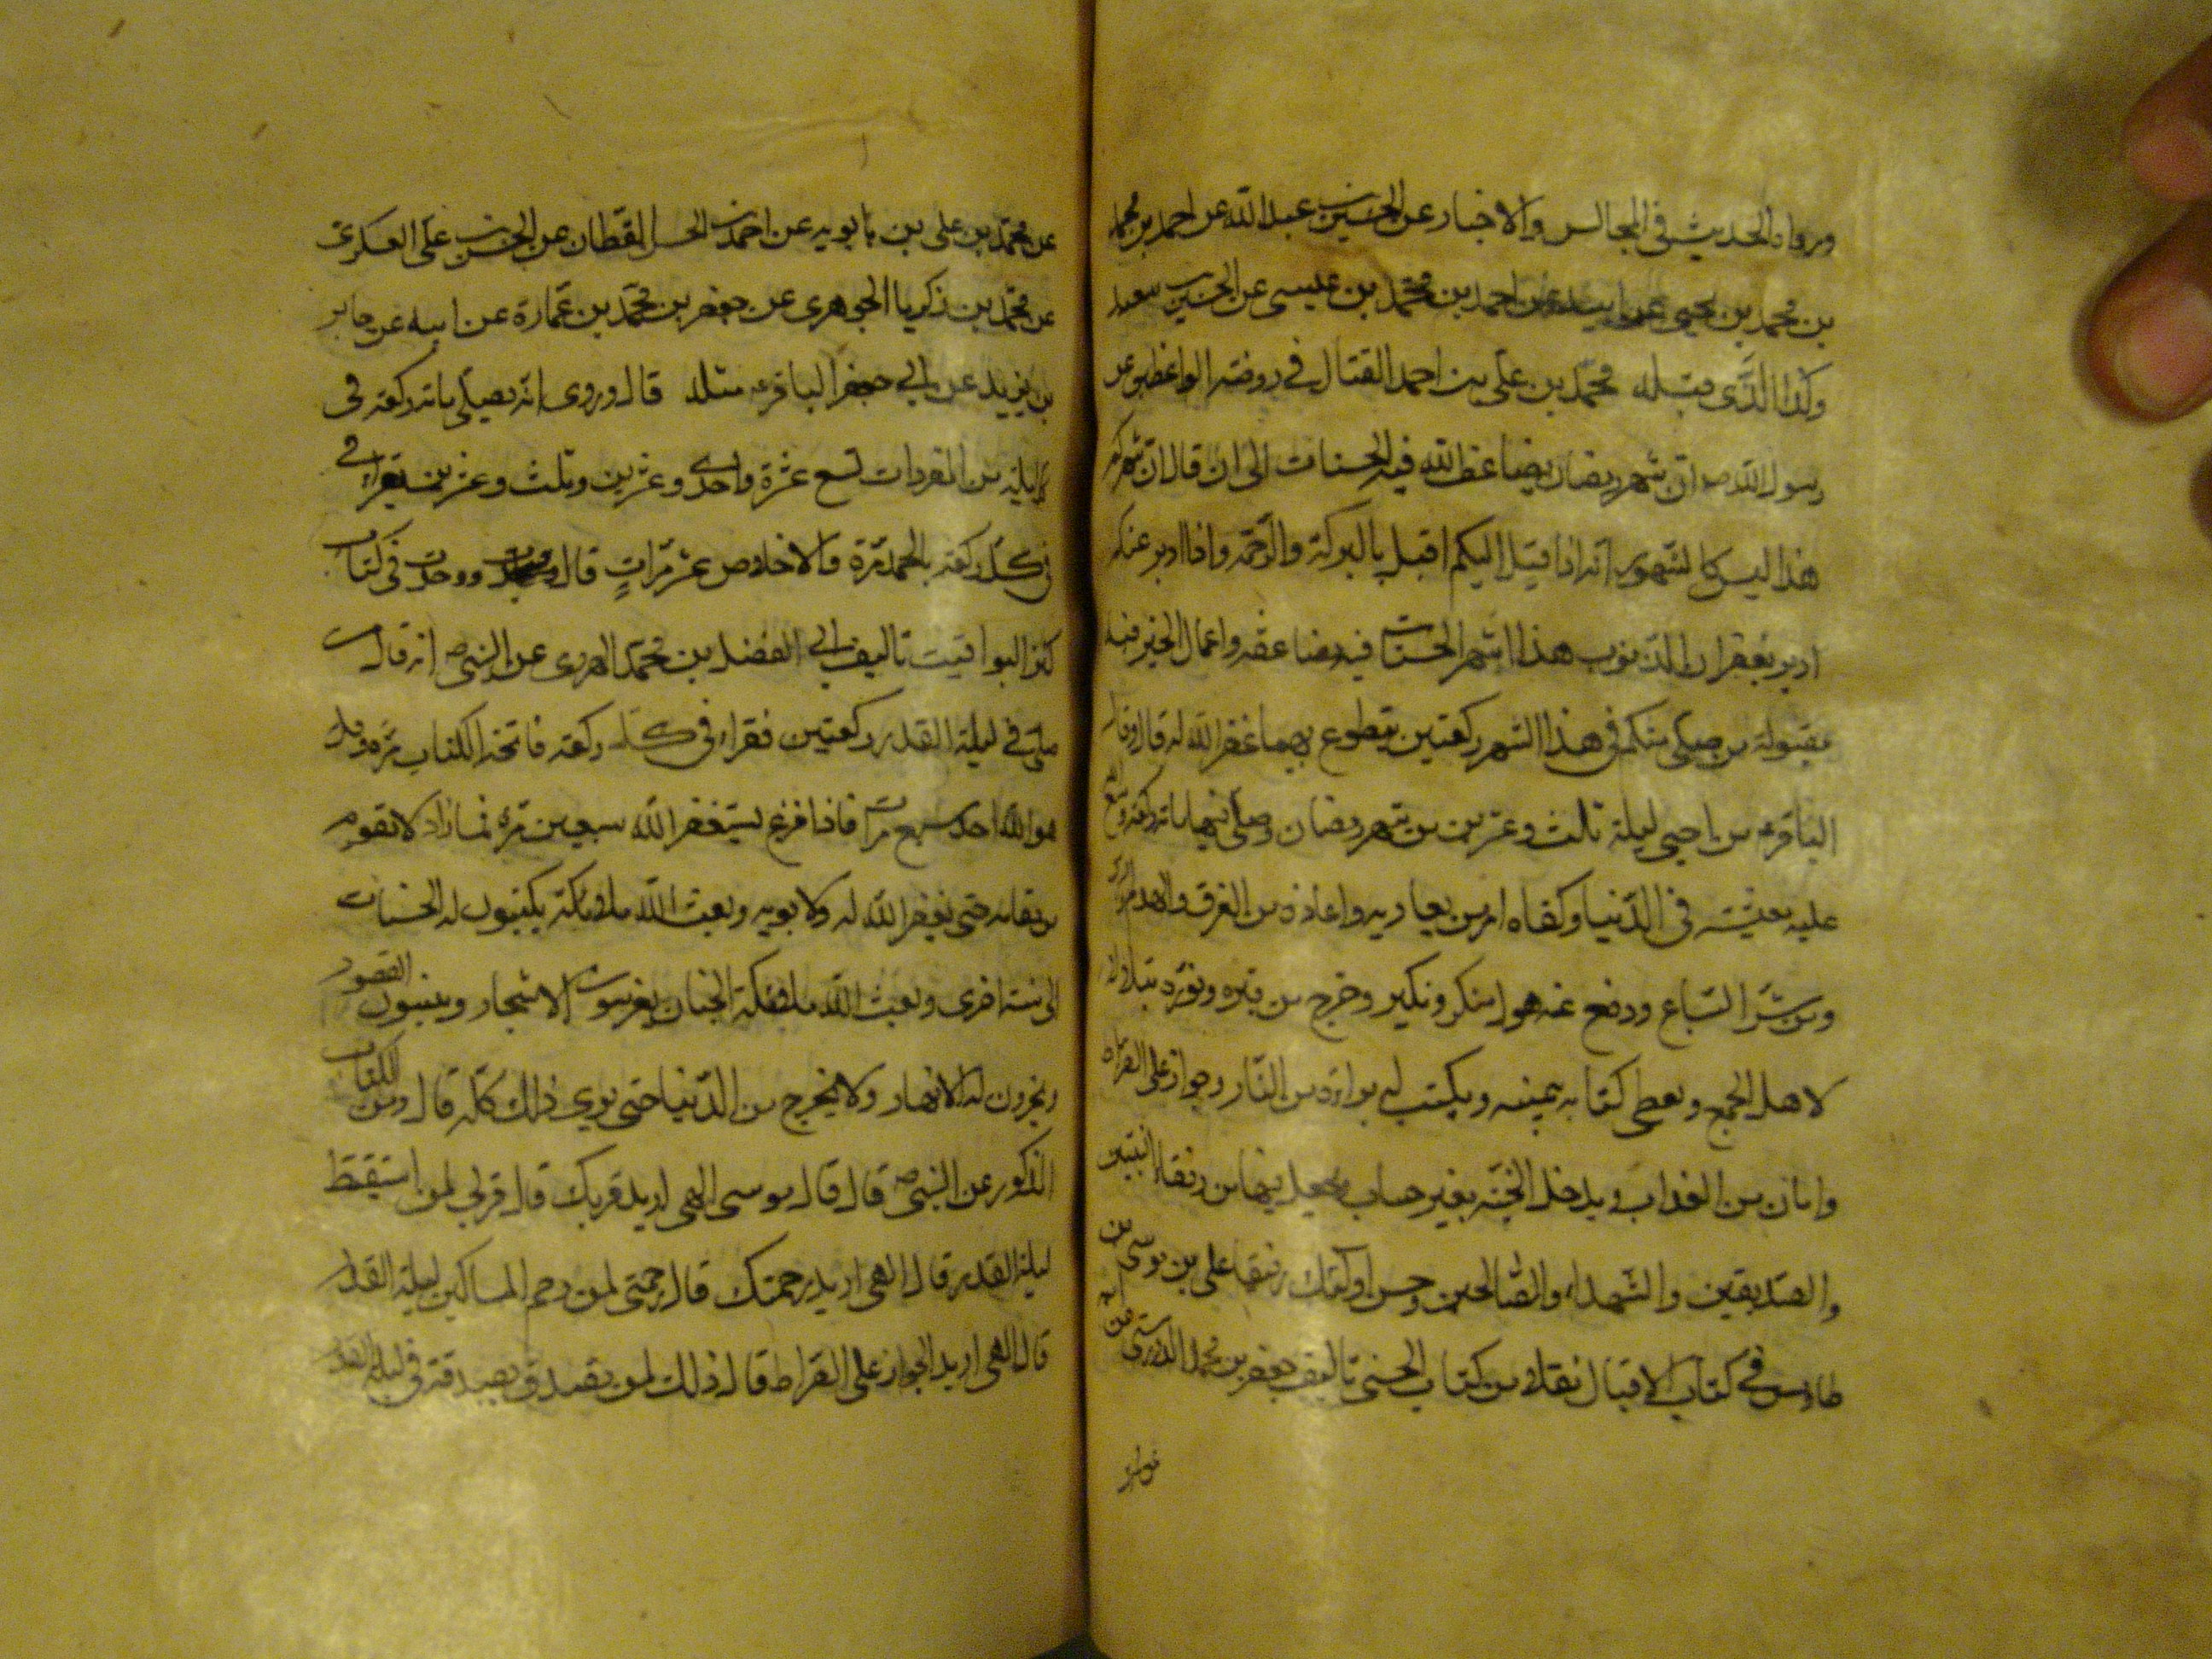 ورواد الحديث في المجالس والاخبار عن الحسين بن عبد الله عن احمد بن محمد
بن محمد بن يحيى عن ابيه عن احمد بن محمد بن عيسى عن الحسين بن سعيد
وكذا الذى قبله محمد بن على بن احمد الفتال في روضة الواعظين عن
رسول الله ص ان شهر رمضان يضاعف الله فيه الحسنات الى ان قال ان شهركم
هذا ليس كالشهور انه اذا اقبل اليكم اقبل بالبركة والرحمة واذا ادبر عنكم
ادبر بغفران الذنوب هذا الشهر الحسنات فيه مضاعفه واعمال الخير فيه
مقبولة من صلى منكم في هذا الشهر ركعتين يتطوع بهما غفر الله له قال وقال
الباقر ع من احيى ليلة ثلث وعشرين من شهر رمضان وصلى فيها مائة ركعة وسع
عليه معيشته في الدنيا وكفاه امر من يعاديه واعاذه من الغرق والهدم والسرق
ومن شر السباع ودفع عنه هول منكر ونكير وخرج من قبره ونوره يتلألأ
لاهل الجمع ويعطى كتابه بيمينه ويكتب له براءة من النار وجواز على الصراط
وامان من العذاب ويدخل الجنة بغير حساب ويجعل فيها من رفقاء النبيين
والصديقين والشهداء والصالحين وحسن اولئك رفيقا على بن موسى بن
طاوس في كتاب الاقبال نقلا من كتاب الحسنى تاليف جعفر بن محمد الدورستى عن ابيه
عن محمد بن على بن بابويه عن احمد بن الحسن القطان عن الحسن بن على العسكرى
عن محمد بن زكريا الجوهرى عن جعفر بن محمد بن عمارة عن ابيه عن جابر
بن يزيد عن ابي جعفر الباقر ع مثله قال وروى انه يصلى مائة ركعة فى
كل ليلة من المفردات تسع عشرة واحدى وعشرين وثلث وعشرين يقرا في
في كل ركعة بالحمد مرة والاخلاص عشر مرات قال ووجدت في كتاب
كنز اليواقيت تاليف ابي الفضل بن محمد الهروى عن النبى ص انه قال من
صلى في ليلة القدر ركعتين فقراء في كل ركعة فاتحة الكتاب مرة وقل
هو الله احد سبع مرات فاذا فرغ يستغفر الله سبعين مرة فما زاد لا يقوم
من مقامه حتى يغفر الله له ولابويه وبعث الله ملائكة يكتبون له الحسنات
الى سنة اخرى وبعث الله ملائكة الى الجنان يغرسون الاشجار ويبنون القصور
ويجرون له الانهار ولا يخرج من الدنيا حتى يرى ذلك كله قال ومن الكتاب
المذكور عن النبى ص قال قال موسى الهى اريد قربك قال قربي لمن استيقظ
ليلة القدر قال الهى اريد رحمتك قال رحمتى لمن رحم المساكين ليلة القدر
قال الهى اريد الجواز على الصراط قال ذلك لمن تصدق بصدقة في ليلة القدر